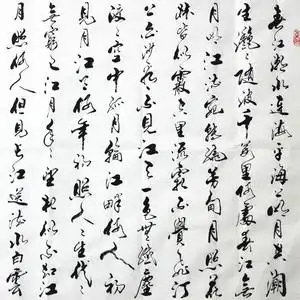 春江潮水連海平海上明月共潮
生灩灩隨波千萬里何處春江無
月明江流宛轉繞芳甸月照花
林皆似霰空里流霜不覺飛汀
上白沙看不見江天一色無纖塵
皎皎空中孤月輪江畔何人初
見月江月何年初照人人生代代
無窮已江月年年望相似不知江
月照何人但見長江送流水白雲